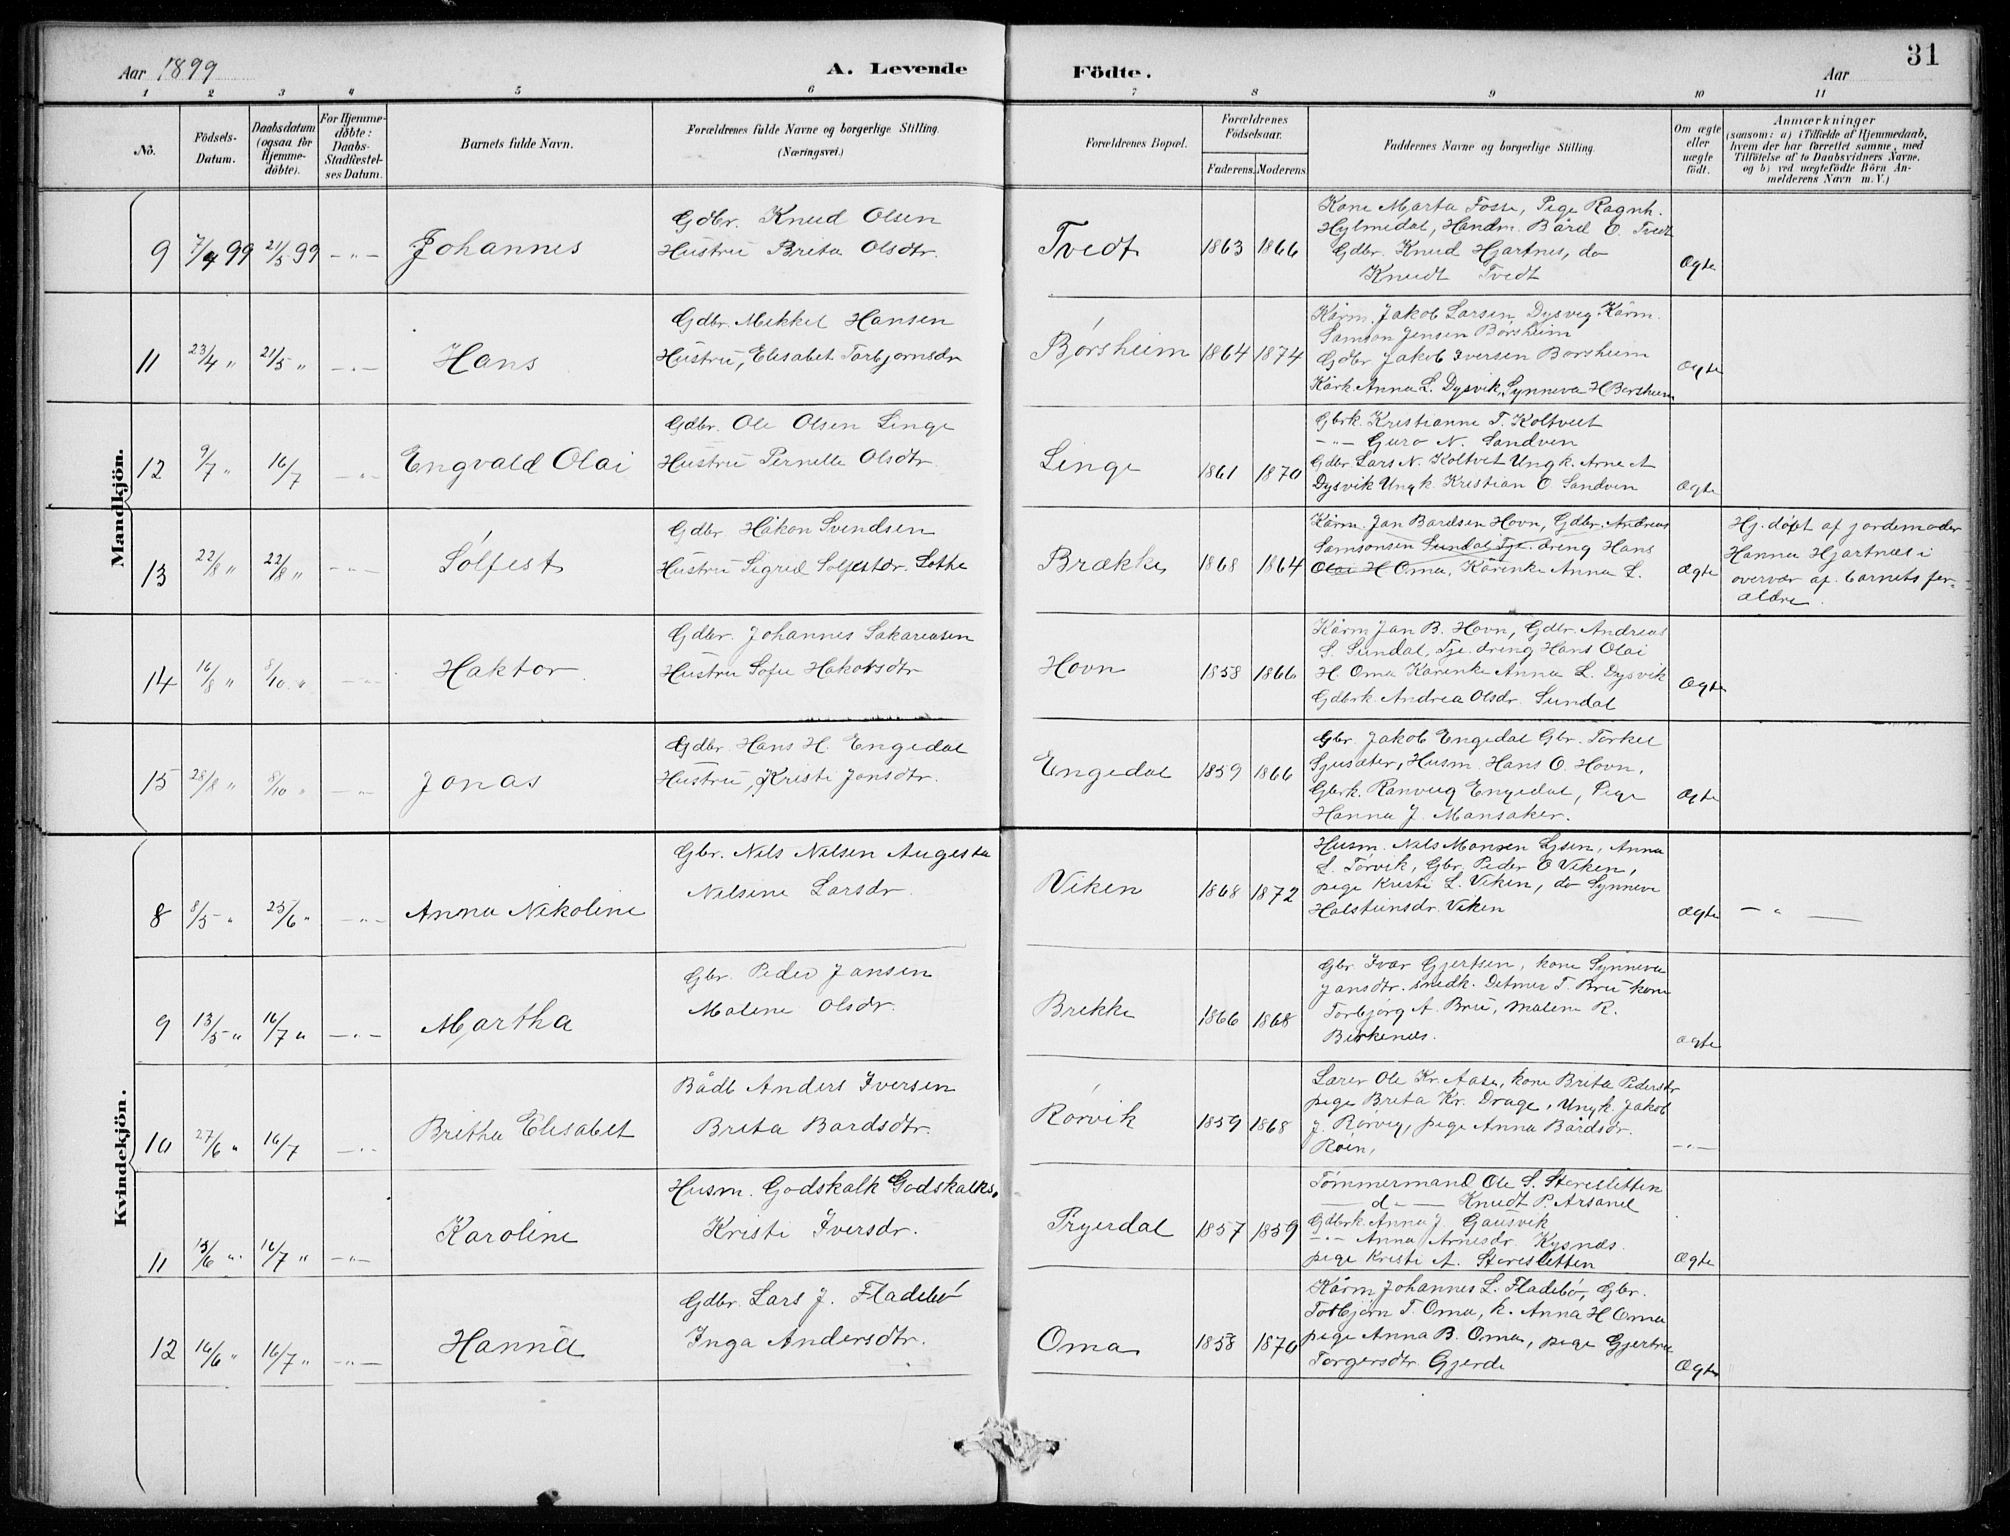 Aar 1899
A. Levende
Födte.
Aar
31
1 2 3 4 5 6 7 8 9 10 11
No.
Födsels-
Datum.
Daabsdatum
(ogsaa for
Hjemme-
döbte).
For Hjemme-
döbte:
Daabs-
Stadfæstel-
ses Datum.
Barnets fulde Navn.
Forældrenes fulde Navne og borgerlige Stilling.
(Næringsvei.)
Forældrenes Bopæl.
Forældrenes
Födselsaar.
Faderens. Moderens.
Faddernes Navne og borgerlige Stilling.
Om ægte
eller
uægte
født.
Anmærkninger
(saasom: a) i Tilfælde af Hjemmedaab,
hvem der har forrettet samme, med
Tilföielse af to Daabsvidners Navne.
og b) ved uægtefödte Börn An-
melderens Navn m. V.)
Mandkjön.
9 7/4 99 21/5 99 -"- Johannes
Gdbr. Knud Olsen
Hustru Brita Olsdtr.
Tvedt 1863 1866
Kone Marta Fosse, Pige Ragnh.
Hylmedal, Handm. Bård O. Tvedt
Gdbr. Knud Hjartnes, do
Knudt Tvedt
Ægte
11 23/4 " 21/5 " -"- Hans
Gdbr. Mikkel Hansen
Hustru, Elisabet Torbjornsdr
Børsheim 1864 1874
Kårm. Jakob Larsen Dysvig, Kårm.
Samson Jensen Børsheim
Gdbr Jakob Iversen Borsheim
Kårk. Anna L. Dysvik, Synneva H Børsheim
Ægte
12 9/7 " 16/7 -"- Engvald Olai
Gdbr. Ole Olsen Linge
Hustru Pernille Olsdtr.
Linge 1861 1870
Gbrk. Kristianne T. Koltveit
-"- Guro N. Sandven
Gdbr Lars N. Koltvet Ungk. Arne A
Dysvik Ungk. Kristian O Sandven
Ægte
13 22/8 " 22/8 " -"- Sølfest
Gdbr Håkon Svendsen
Hustru Sigrid Solfestdr. Lothe
Brække 1868 1864
Kårm. Jan Bardsen Hovn, Gdbr. Andreas
Samsonsen Sundal Tje. dreng Hans
Olai H Oma, Kårenke Anna L.
Ægte
Hj. døbt af jordemoder
Hanna Hjartnæs i
overvær af. barnets for-
ældre.
14 16/8 " 8/10 " -"- Haktor
Gdbr. Johannes Sakariasen
Hustru Sofie Hakonsdtr
Hovn 1858 1866
Kårm Jan B. Hovn, Gdbr. Andreas
S. Sundal, Tje. dreng Hans Olai
H. Oma Karenke Anna L. Dysvik
Gdbrk. Andrea Olsdr. Sundal
Ægte
15 28/8 " 8/10 " -"- Jonas
Gdbr. Hans H. Engedal
Hustru, Kristi Jonsdtr.
Engedal 1859 1866
Gbr. Jakob Engedal Gbr. Torkel
Sjusæter, Husm. Hans O. Hovn,
Gbrk. Ranveig Engedal, Pige
Hanna J. Mansaker.
Ægte
Kvindekjön.
8 8/5 " 25/6 " -"- Anna Nikoline
Gbr. Nils Nilsen Augesta
Nilsine Larsdr.
Viken 1868 1872
Husm. Nils Monsen Lysen, Anna
L. Torvik, Gbr. Peder O Viken,
pige Kristi L. Viken, do Synneve
Halsteinsdr. Viken
Ægte - " -
9 13/5 " 16/7 " -"- Martha
Gbr. Peder Jansen
Malene Olsdr.
Brekke 1866 1868
Gbr. Ivar Gjertsen, kone Synneva
Jansdtr. smedk. Detmer T. Bru kone
Torbjørg A. Bru, Malene R.
Birkenæs.
ægte
10 27/6 " 16/7 -"- Britha Elisabet
Bådb Anders Iversen
Brita Bardsdtr.
Rørvik 1859 1868
Lærer Ole Kr. Aase, kone Brita Pedersdr
pige Brita Kr. Drage, Ungk. Jakob
J. Rørvig, pige Anna Bårdsdr.
Røen,
-"-
11 15/6 " 16/7 " -"- Karoline
Husm. Godskalk Godskalks.
Kristi Iversdr.
Fryerdal 1857 1859
Tømmermand Ole S. Steresletten
— d — Knudt P. Arsand
Gdbrk Anna J. Gausvik
-"- Anna Arnesdr. Kysnæs.
pige Kristi A. Steresletten
Ægte
12 16/6 " 16/7 " -"- Hanna
Gdbr. Lars J. Fladebø
Inga Andersdtr.
Oma 1858 1870
Kårm Johannes L. Fladebø, Gbr.
Torbjørn T. Oma, k. Anna H Oma
pige Anna B. Oma, pige Gjertrue
Torgersdtr. Gjerde
Ægte